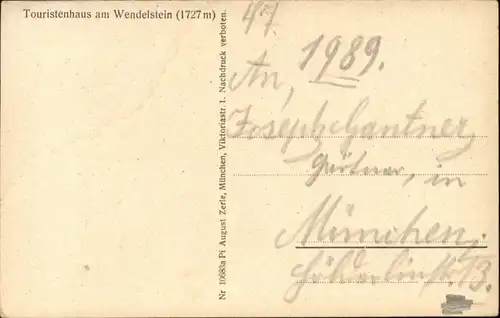 Touristenhaus am Wendelstein (1727 m)
Nr 10683a Pi August Zerle, München, Viktoriastr 1. Nachdruck verboten.
47
1989.
An,
Joseph Gantner
Gärtner, in
München.
Hölderlinstr 13.